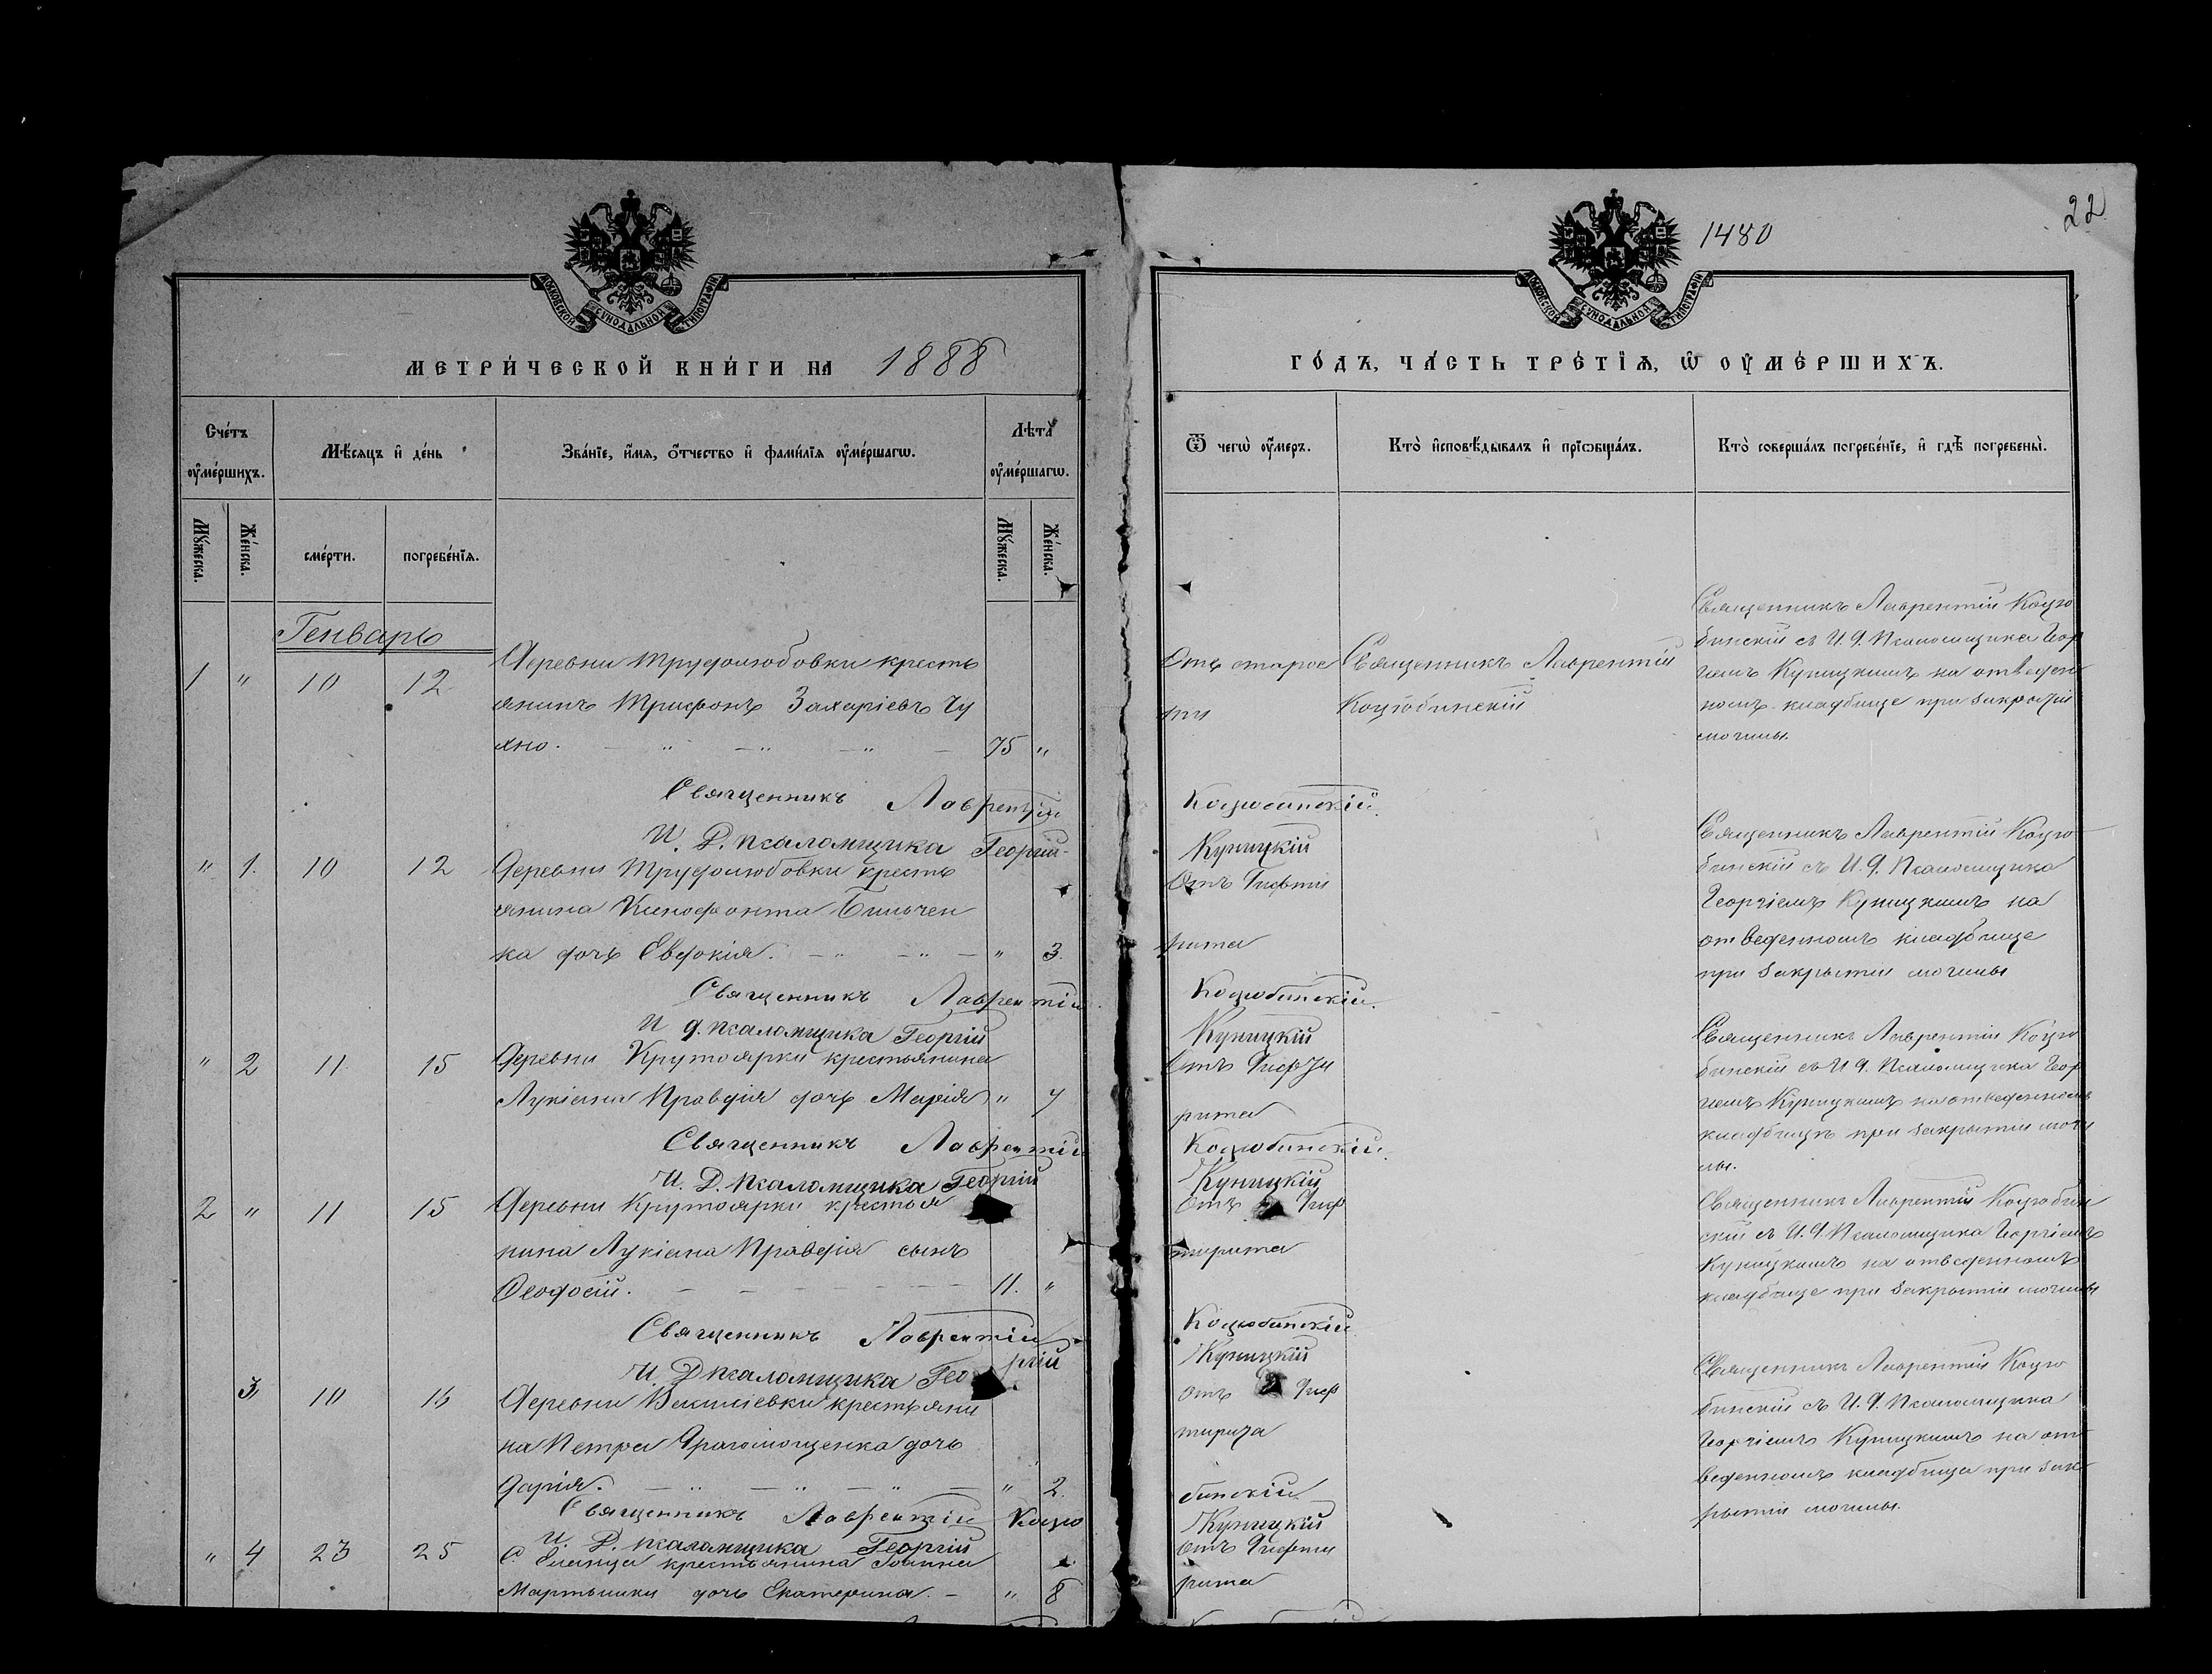 1480
22
МОСКОВСКОЙ СУНОДАЛЬНОЙ ТИПОГРАФІИ
МОСКОВСКОЙ СУНОДАЛЬНОЙ ТИПОГРАФІИ
МЕТРИ́ЧЕСКОЙ КНИ́ГИ НА 1888
ГО́ДЪ, ЧА́СТЬ ТРЕ́ТІѦ, Ѡ ОУ҆МЕ́РШИХЪ.
Сче́тъ оу҆ме́ршихъ.
Мѣ́сяцъ и҆ де́нь
Зва́нїе, и҆́мѧ, ѻ҆́тчество и҆ фами́лїѧ оу҆ме́ршагѡ.
Лѣта̀ оу҆ме́ршагѡ.
Ѿ чегѡ̀ оу҆́меръ.
Кто̀ и҆сповѣ́дывалъ и҆ прїѡбща́лъ.
Кто̀ соверша́лъ погребе́нїе, и҆ гдѣ̀ погребены̀.
Мꙋ́жеска.
Же́нска.
сме́рти.
погребе́нїѧ.
Мꙋ́жеска.
Же́нска.
Генварь
1 " 10 12
Деревни Трудолюбовки кресть
янинъ Трифонъ Захаріевъ Чу
яно. — " — " — " — 75 "
Отъ старос
ти
Священникъ Лаврентій
Коцюбинскій
Священникъ Лаврентій Коцю
бинскій съ И. д. Псаломщика Геор
гіемъ Куницкимъ на отведен
номъ кладбище при закрытіи
могилы.
Священникъ Лаврентій Коцюбинскій.
И. Д. псаломщика Георгій Куницкій
" 1. 10 12
Деревни Трудолюбовки кресть
янина Ксенофонта Бильчен
ка дочь Евдокія. — " — " — " 3.
Отъ Дифти
рита
Священникъ Лаврентій Коцю
бинскій съ И. д. Псаломщика
Георгіемъ Куницкимъ на
отведенномъ кладбище
при закрытіи могилы
Священникъ Лаврентій Коцюбинскій.
И д. псаломщика Георгій Куницкій
" 2 11 15
Деревни Крутоярки крестьянина
Лукіана Правдія дочь Марія " 7
Отъ Дифти
рита
Священникъ Лаврентій Коцю
бинскій съ И д. Псаломщика Геор
гіемъ Куницкимъ на отведенномъ
кладбищѣ при закрытіи моги
лы.
Священникъ Лаврентій Коцюбинскій.
И. Д. псаломщика Георгій Куницкій
2 " 11 15
Деревни Крутоярки крестья
нина Лукіана Правдія сынъ
Феодосій. — — — — — 11. "
Отъ Диф
тирита
Священникъ Лаврентій Коцюбин
скій съ И. д. Псаломщика Георгіемъ
Куницкимъ на отведенномъ
кладбище при закрытіи могилы
Священникъ Лаврентій Коцюбинскій
И. Д псаломщика Георгій Куницкій
3 10 16
Деревни крестьяни
на Петра Драгомощенка дочь
Дарія. — " — " — " — " 2.
отъ Диф
тирита
Священникъ Лаврентій Коцю
бинскій съ И. д. Псаломщика
Георгіемъ Куницкимъ на от
веденномъ кладбище при зак
рытіи могилы.
Священникъ Лаврентій Коцюбинскій.
И. Д. псаломщика Георгій Куницкій
" 4 23 25
С. Еланца крестьянина Іоанна
Мартынки дочь Екатерина. — " 8
Отъ Дифти
рита